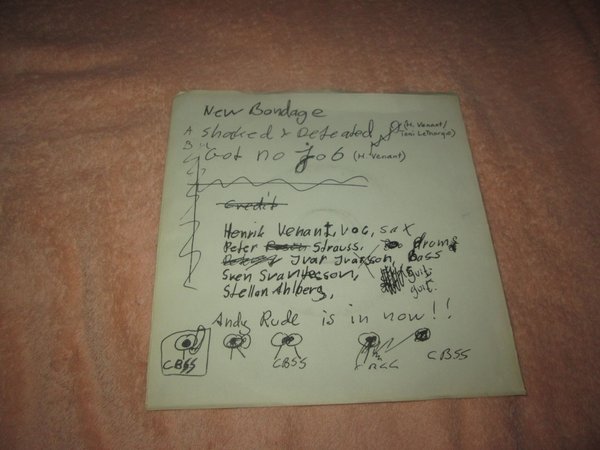 New Bondage
A Shaked & Defeated (H. Venant/
Toni Lethargo)
B Got no job (H. Venant)
Credit
Henrik Venant, voc, sax
Peter Strauss, drums
Ivar Ivarsson, Bass
Sven Svantesson, guit.
Stellan Ahlberg, guit.
Andy Rude is in now!!
CBSS CBSS CBSS